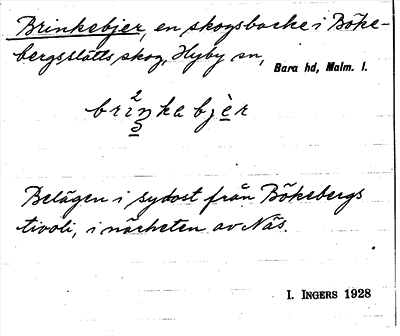 Brinkebjer, en skogsbacke i Böke-
bergsslätts skog, Hyby sn,
Bara hd, Malm. l.
brinkabjèr
Belägen i sydost från Bökebergs
tivoli, i närheten av Näs.
I. INGERS 1928